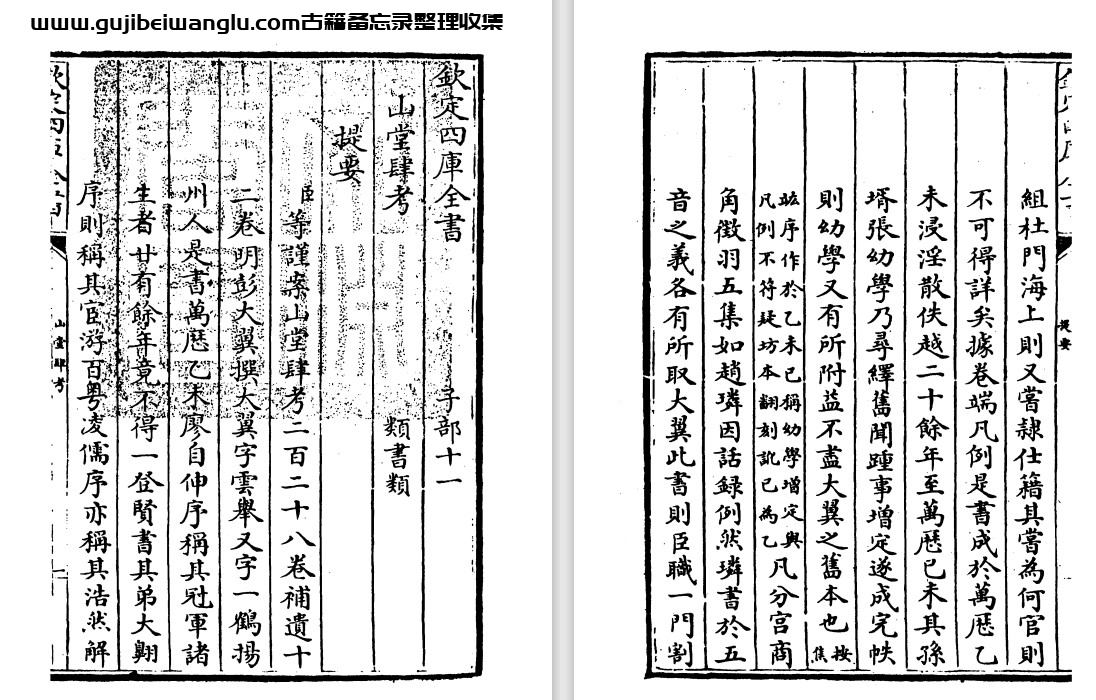 www.gujibeiwanglu.com古籍备忘录整理收集
欽定四庫全書 子部十一
山堂肆考 類書類
提要
臣等謹案山堂肆考二百二十八卷補遺十
二卷明彭大翼撰大翼字雲舉又字一鶴揚
州人是書萬厯乙未廖自伸序稱其冠軍諸
生者廿有餘年竟不得一登賢書其弟大翺
序則稱其宦游百粤凌儒序亦稱其浩然解
山堂肆考
提要
組杜門海上則又嘗隷仕籍其嘗為何官則
不可得詳矣據卷端凡例是書成於萬厯乙
未浸淫散佚越二十餘年至萬厯已未其孫
壻張幼學乃尋繹舊聞踵事增定遂成完帙
則幼學又有所附益不盡大翼之舊本也 按焦
竑序作於乙未已稱幼學增定與
凡例不符疑坊本翻刻訛已為乙
凡分宫商
角徵羽五集如趙璘因話録例然璘書於五
音之義各有所取大翼此書則臣職一門割